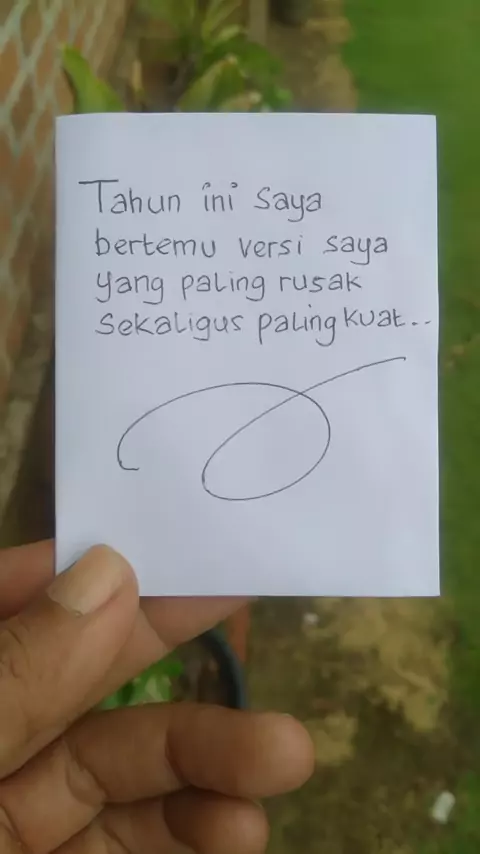 Tahun ini saya
bertemu versi saya
yang paling rusak
sekaligus paling kuat..